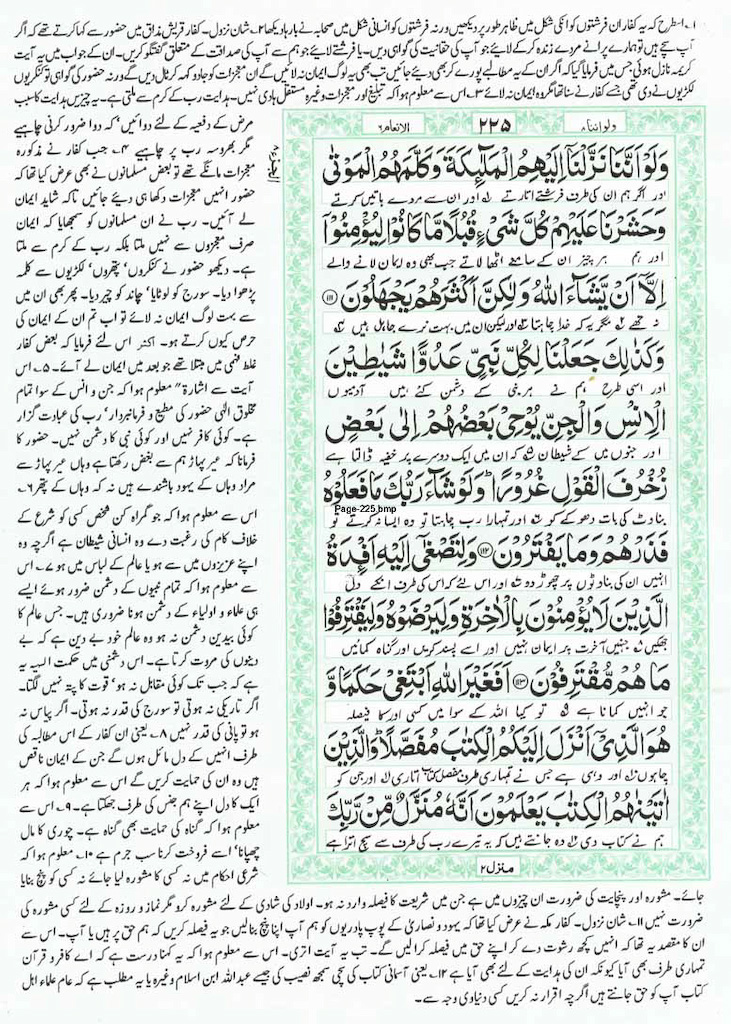 ۱۔ اسطرح کہ یہ کفار ان فرشتوں کو انکی شکل میں ظاہر طور پر دیکھیں ورنہ فرشتوں کو انسانی شکل میں صحابہ نے بارہا دیکھا ۲۔ شان نزول۔ کفار قریش مذاق میں حضور سے کہا کرتے تھے کہ اگر
آپ سچے ہیں تو ہمارے پرانے مردے زندہ کر کے لائیے جو آپ کی حقانیت کی گواہی دیں۔ یا فرشتے لائیے جو ہم سے آپ کی صداقت کے متعلق گفتگو کریں۔ ان کے جواب میں یہ آیت
کریمہ نازل ہوئی جس میں فرمایا گیا کہ اگر ان کے یہ مطالبے پورے کر بھی دیئے جائیں تب بھی یہ لوگ ایمان نہ لائیں گے ان معجزات کو جادو کہہ کر ٹال دیں گے ورنہ حضور کی گواہی تو کنکریوں
لکڑیوں نے دی تھی جسے کفار نے سنا تھا مگر وہ ایمان نہ لائے ۳۔ اس سے معلوم ہوا کہ تبلیغ اور معجزات وغیرہ مستقل ہادی نہیں۔ ہدایت رب کے کرم سے ملتی ہے۔ یہ چیزیں ہدایت کا سبب
مرض کے دفعیہ کے لئے دوائیں' کہ دوا ضرور کرنی چاہیے
مگر بھروسہ رب پر چاہیے ۴۔ جب کفار نے مذکورہ
معجزات مانگے تھے تو بعض مسلمانوں نے بھی عرض کیا تھا کہ
حضور انہیں معجزات دکھا ہی دیئے جائیں تاکہ شاید ایمان
لے آئیں۔ رب نے ان مسلمانوں کو سمجھایا کہ ایمان
صرف معجزوں سے نہیں ملتا بلکہ رب کے کرم سے ملتا
ہے۔ دیکھو حضور نے کنکروں' پتھروں' لکڑیوں سے کلمہ
پڑھوا دیا۔ سورج کو لوٹایا' چاند کو چیر دیا۔ پھر بھی ان میں
سے بہت لوگ ایمان نہ لائے تو اب تم ان کے ایمان کی
حرص کیوں کرتے ہو۔ اکثر اس لئے فرمایا کہ بعض کفار
غلط فہمی میں مبتلا تھے جو بعد میں ایمان لے آئے۔ ۵۔ اس
آیت سے اشارۃً معلوم ہوا کہ جن و انس کے سوا تمام
مخلوق الٰہی حضور کی مطیع و فرمانبردار' رب کی عبادت گزار
ہے۔ کوئی کافر نہیں اور کوئی نبی کا دشمن نہیں۔ حضور کا
فرمانا کہ عیر پہاڑ ہم سے بغض رکھتا ہے وہاں عیر پہاڑ سے
مراد وہاں کے یہود باشندے ہیں نہ کہ وہاں کے پتھر ۶۔
اس سے معلوم ہوا کہ جو گمراہ کن شخص کسی کو شرع کے
خلاف کام کی رغبت دے وہ انسانی شیطان ہے اگرچہ وہ
اپنے عزیزوں میں سے ہو یا عالم کے لباس میں ہو ۷۔ اس
سے معلوم ہوا کہ تمام نبیوں کے دشمن ضرور ہوئے ایسے
ہی علماء و اولیاء کے دشمن ہونا ضروری ہیں۔ جس عالم کا
کوئی بیدین دشمن نہ ہو وہ عالم خود بے دین ہے کہ بے
دینوں کی مروت کرتا ہے۔ اس دشمنی میں حکمت الٰہیہ یہ
ہے کہ جب تک کوئی مقابل نہ ہو' قوت کا پتہ نہیں لگتا۔
اگر تاریکی نہ ہوتی تو سورج کی قدر نہ ہوتی۔ اگر پیاس نہ
ہو تو پانی کی قدر نہیں ۸۔ یعنی ان کفار کے اس مطالبہ کی
طرف انہیں کے دل مائل ہوں گے جن کے ایمان ناقص
ہیں وہ ان کی حمایت کریں گے اس سے معلوم ہوا کہ ہر
ایک کا دل اپنے ہم جنس کی طرف جھکتا ہے۔ ۹۔ اس سے
معلوم ہوا کہ گناہ کی حمایت بھی گناہ ہے۔ چوری کا مال
چھپانا' اسے فروخت کرنا سب جرم ہے ۱۰۔ معلوم ہوا کہ
شرعی احکام میں نہ کسی کا مشورہ لیا جائے نہ کسی کو پنچ بنایا
ولو اننا ۸
۲۲۵
الانعام ۶
وَلَوْ اَنَّنَا نَزَّلْنَاۤ اِلَیْهِمُ الْمَلٰٓىِٕكَةَ وَكَلَّمَهُمُ الْمَوْتٰى
اور اگر ہم ان کی طرف فرشتے اتارتے ۱ اور ان سے مردے باتیں کرتے
وَحَشَرْنَا عَلَیْهِمْ كُلَّ شَیْءٍ قُبُلًا مَّا كَانُوْا لِیُؤْمِنُوْۤا
اور ہم ہر چیز ان کے سامنے اٹھا لاتے جب بھی وہ ایمان لانے والے
اِلَّاۤ اَنْ یَّشَآءَ اللّٰهُ وَلٰكِنَّ اَكْثَرَهُمْ یَجْهَلُوْنَ ۝۱۱۱
نہ تھے ۲ مگر یہ کہ خدا چاہتا ۳ اور لیکن ان میں بہت نرے جاہل ہیں ۴
وَكَذٰلِكَ جَعَلْنَا لِكُلِّ نَبِیٍّ عَدُوًّا شَیٰطِیْنَ
اور اسی طرح ہم نے ہر نبی کے دشمن کئے ہیں آدمیوں
الْاِنْسِ وَالْجِنِّ یُوْحِیْ بَعْضُهُمْ اِلٰى بَعْضٍ
اور جنوں میں کے شیطان ۵ کہ ان میں ایک دوسرے پر خفیہ ڈالتا ہے
زُخْرُفَ الْقَوْلِ غُرُوْرًا وَلَوْ شَآءَ رَبُّكَ مَا فَعَلُوْهُ
Page-225.bmp
بناوٹ کی بات دھوکے کو ۶ اور تمہارا رب چاہتا تو وہ ایسا نہ کرتے تو
فَذَرْهُمْ وَمَا یَفْتَرُوْنَ ۝۱۱۲ وَلِتَصْغٰۤى اِلَیْهِ اَفْـِٕدَةُ
انہیں ان کی بناوٹوں پر چھوڑ دو ۷ اور اس لئے کہ اس کی طرف انکے دل
الَّذِیْنَ لَا یُؤْمِنُوْنَ بِالْاٰخِرَةِ وَلِیَرْضَوْهُ وَلِیَقْتَرِفُوْا
جھکیں ۸ جنہیں آخرت پر ایمان نہیں اور اسے پسند کریں اور گناہ کمائیں
مَا هُمْ مُّقْتَرِفُوْنَ ۝۱۱۳ اَفَغَیْرَ اللّٰهِ اَبْتَغِیْ حَكَمًا وَّ
جو انہیں کمانا ہے ۹ تو کیا اللہ کے سوا میں کسی اور کا فیصلہ
هُوَ الَّذِیْۤ اَنْزَلَ اِلَیْكُمُ الْكِتٰبَ مُفَصَّلًا وَالَّذِیْنَ
چاہوں ۱۰ اور وہی ہے جس نے تمہاری طرف مفصل کتاب اتاری ۱۱ اور جن کو
اٰتَیْنٰهُمُ الْكِتٰبَ یَعْلَمُوْنَ اَنَّهٗ مُنَزَّلٌ مِّنْ رَّبِّكَ
ہم نے کتاب دی ۱۲ وہ جانتے ہیں کہ یہ تیرے رب کی طرف سے سچ اترا ہے
منزل ۲
جائے۔ مشورہ اور پنچایت کی ضرورت ان چیزوں میں ہے جن میں شریعت کا فیصلہ وارد نہ ہو۔ اولاد کی شادی کے لئے مشورہ کرو مگر نماز و روزہ کے لئے کسی مشورہ کی
ضرورت نہیں ۱۱۔ شان نزول۔ کفار مکہ نے عرض کیا تھا کہ یہود و نصاریٰ کے پوپ پادریوں کو ہم آپ اپنا پنچ بنالیں جو یہ فیصلہ کریں کہ ہم حق پر ہیں یا آپ۔ اس سے
ان کا مقصد یہ تھا کہ انہیں کچھ رشوت دے کر اپنے حق میں فیصلہ کرالیں گے۔ تب یہ آیت اتری۔ اس سے معلوم ہوا کہ یہ کہنا درست ہے کہ اے کافرو قرآن
تمہاری طرف بھی آیا کیونکہ ان کی ہدایت کے لئے بھی آیا ہے ۱۲۔ یعنی آسمانی کتاب کی سچی سمجھ نصیب کی جیسے عبداللہ ابن اسلام وغیرہ یا یہ مطلب ہے کہ عام علماء اہل
کتاب آپ کو حق جانتے ہیں اگرچہ اقرار نہ کریں کسی دنیاوی وجہ سے۔